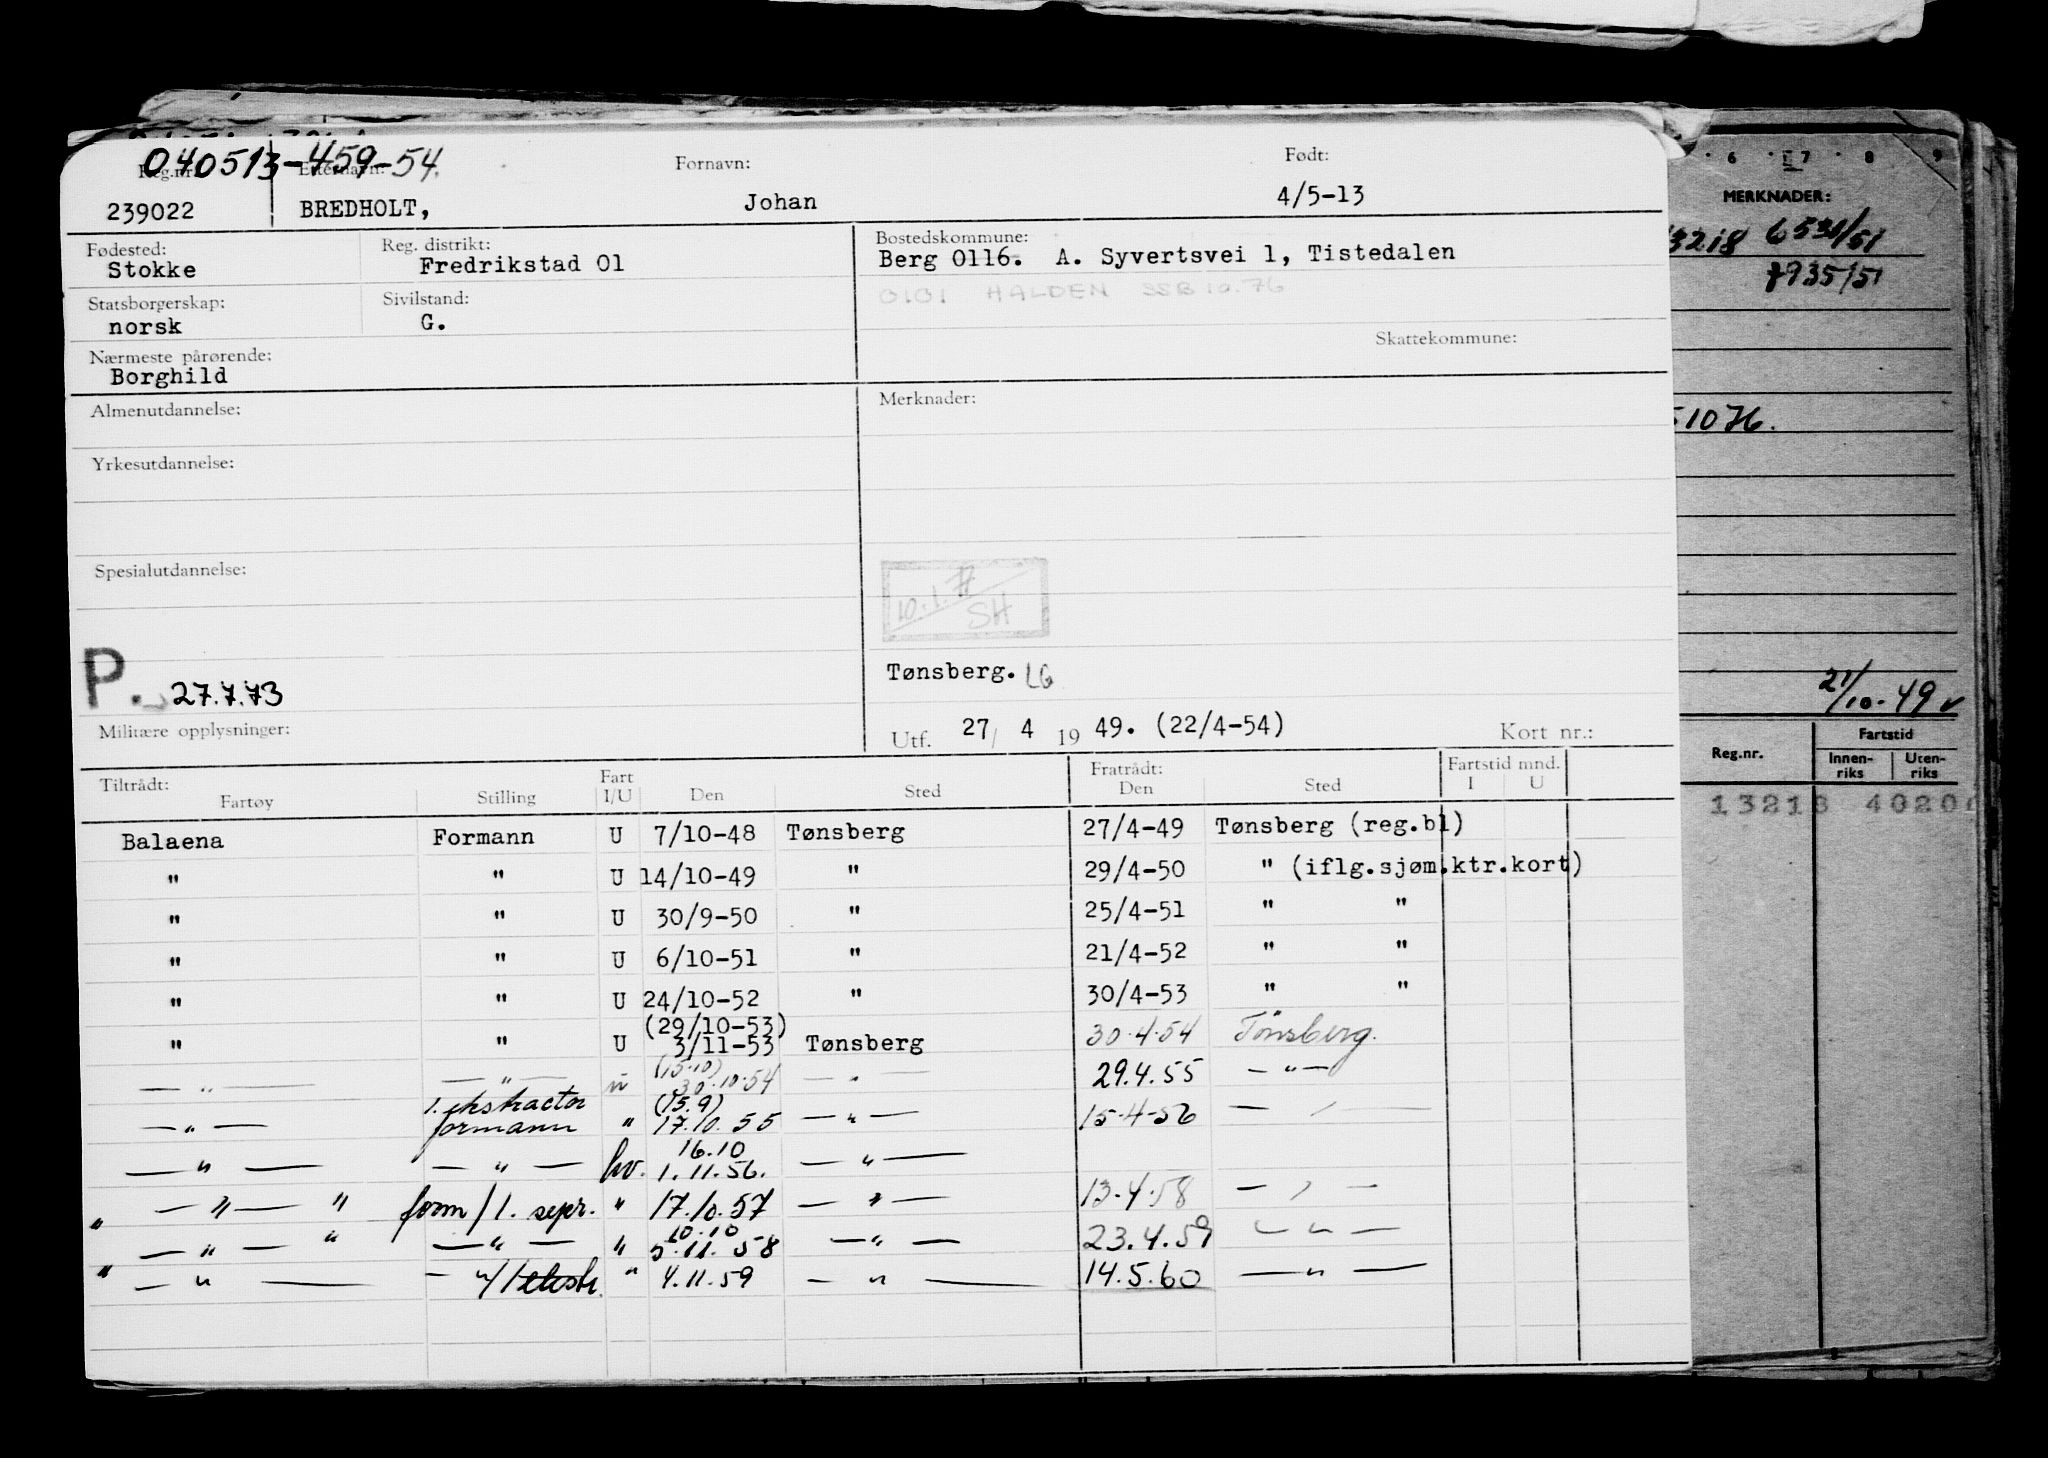 040513-459-54.
Reg.nr. Etternavn: Fornavn: Født:
239022 BREDHOLT, Johan 4/5-13
Fødested: Reg. distrikt: Bostedskommune:
Stokke Fredrikstad 01 Berg 0116. A. Syvertsvei 1, Tistedalen
0101 HALDEN SSB 10.76
Statsborgerskap: Sivilstand:
norsk G.
Skattekommune:
Nærmeste pårørende:
Borghild
Almenutdannelse: Merknader:
Yrkesutdannelse:
Spesialutdannelse:
10.1.77
SH
Tønsberg. LG
P. 27.7.73
Militære opplysninger:
Utf. 27/ 4 19 49. (22/4-54) Kort nr.:
Tiltrådt: Fart Fratrådt: Fartstid mnd.
Fartøy Stilling I/U Den Sted Den Sted I U
Balaena Formann U 7/10-48 Tønsberg 27/4-49 Tønsberg (reg.bl)
" " U 14/10-49 " 29/4-50 " (iflg.sjøm.ktr.kort)
" " U 30/9-50 " 25/4-51 " "
" " U 6/10-51 " 21/4-52 " "
" " U 24/10-52 " 30/4-53 " "
(29/10-53)
" " U 3/11-53 Tønsberg 30.4.54 Tönsberg.
(15.10)
— " — — " — u 30.10.54 — " — 29.4.55 — " —
1. ekstractor (15.9)
— " — formann " 17.10.55 — " — 15-4-56 — " —
16.10
— " — — " — hv. 1.11.56. — " —
" — " — " form/1. sepr. " 17.10.57 — " — 13.4.58 — " —
10.10
— " — " — " — " 5.11.58 — " — 23.4.59 — " —
" — " — — "/1 ekstr. " 4.11.59 — " — 14.5.60 — " —
6 7 8 9
MERKNADER:
13218 6530/51
7935/51
51076.
21/10.49 v
Reg.nr. Fartstid
Innen-riks Uten-riks
13218 4020